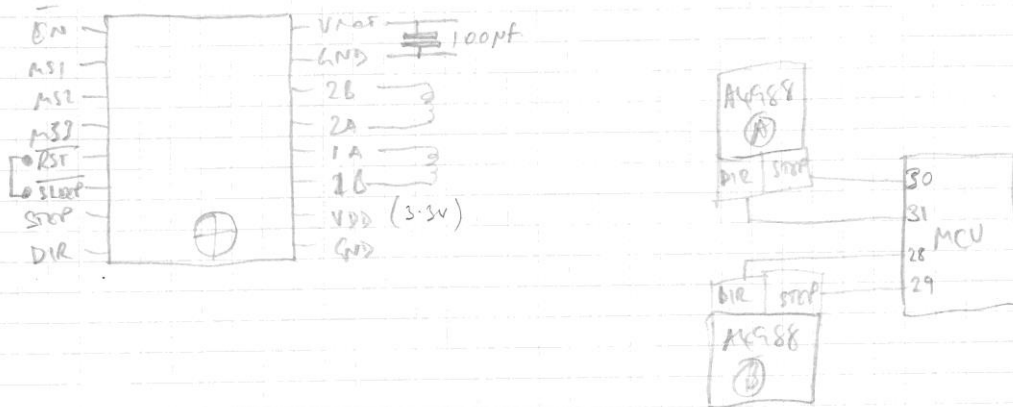 EN
MS1
MS2
MS3
RST
SLEEP
STEP
DIR
VMOT
100µf
GND
2B
2A
1A
1B
VDD (3.3V)
GND
A4988
A
DIR STEP
30
31
MCU
28
29
DIR STEP
A4988
B